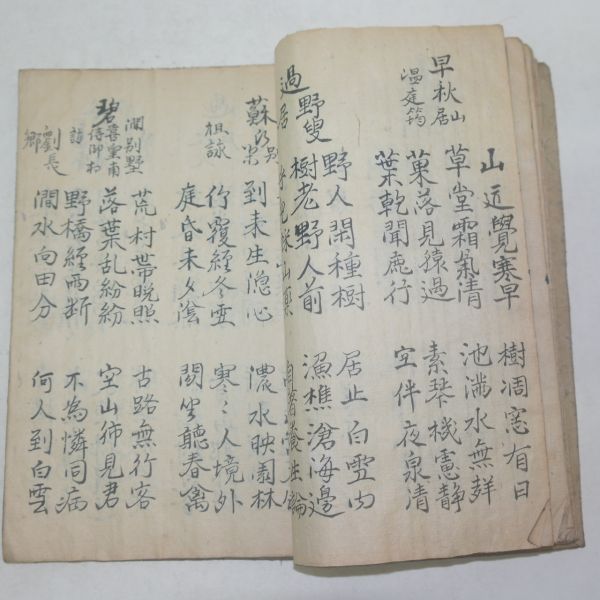 早秋山居
溫庭筠
山近覺寒早
樹凋窓有日
草堂霜氣清
池滿水無聲
菓落見猿過
素琴機慮靜
葉乾聞鹿行
空伴夜泉清
過野叟居
野人閑種樹
居止白雲內
樹老野人前
漁樵滄海邊
兒採山藥
自著養生論
蘇氏別業
祖詠
到来生隐心
濃水映園林
竹覆經冬雪
寒〻人境外
庭昏未夕陰
閑坐聽春禽
碧澗別墅
喜皇甫侍御相訪
劉長卿
荒村帶晩照
古路無行客
落葉乱紛紛
空山独見君
野橋經雨断
不為憐同病
澗水向田分
何人到白雲